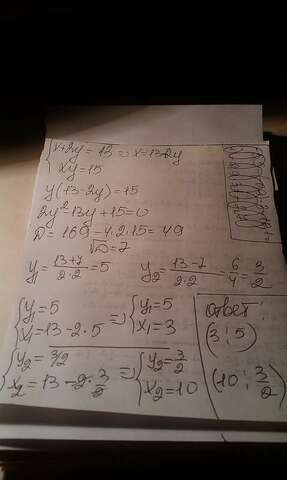 {x+2y=13 => x=13-2y
xy=15
y(13-2y)=15
2y²-13y+15=0
D=169-4·2·15=49
√D=7
y₁=(13+7)/(2·2)=5 y₂=(13-7)/(2·2)=6/4=3/2
{y₁=5 => {y₁=5
x₁=13-2·5 x₁=3
{y₂=3/2 => {y₂=3/2
x₂=13-2·3/2 x₂=10
Ответ:
(3;5)
(10;3/2)